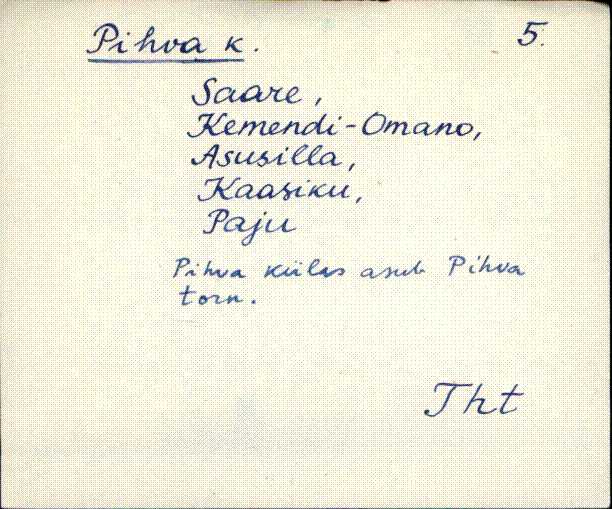 Pihva k.
5.
Saare,
Kemendi-Omano,
Asusilla,
Kaasiku,
Paju
Pihva külas asub Pihva
torn.
Tht